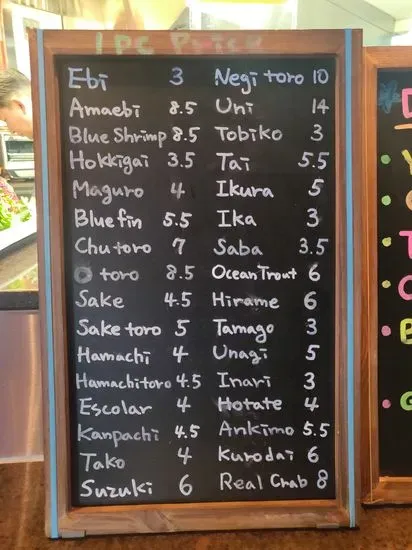 1 PC Price
Ebi 3
Amaebi 8.5
Blue Shrimp 8.5
Hokkigai 3.5
Maguro 4
Bluefin 5.5
Chutoro 7
O toro 8.5
Sake 4.5
Sake toro 5
Hamachi 4
Hamachi toro 4.5
Escolar 4
Kanpachi 4.5
Tako 4
Suzuki 6
Negi toro 10
Uni 14
Tobiko 3
Tai 5.5
Ikura 5
Ika 3
Saba 3.5
Ocean Trout 6
Hirame 6
Tamago 3
Unagi 5
Inari 3
Hotate 4
Ankimo 5.5
Kurodai 6
Real Crab 8